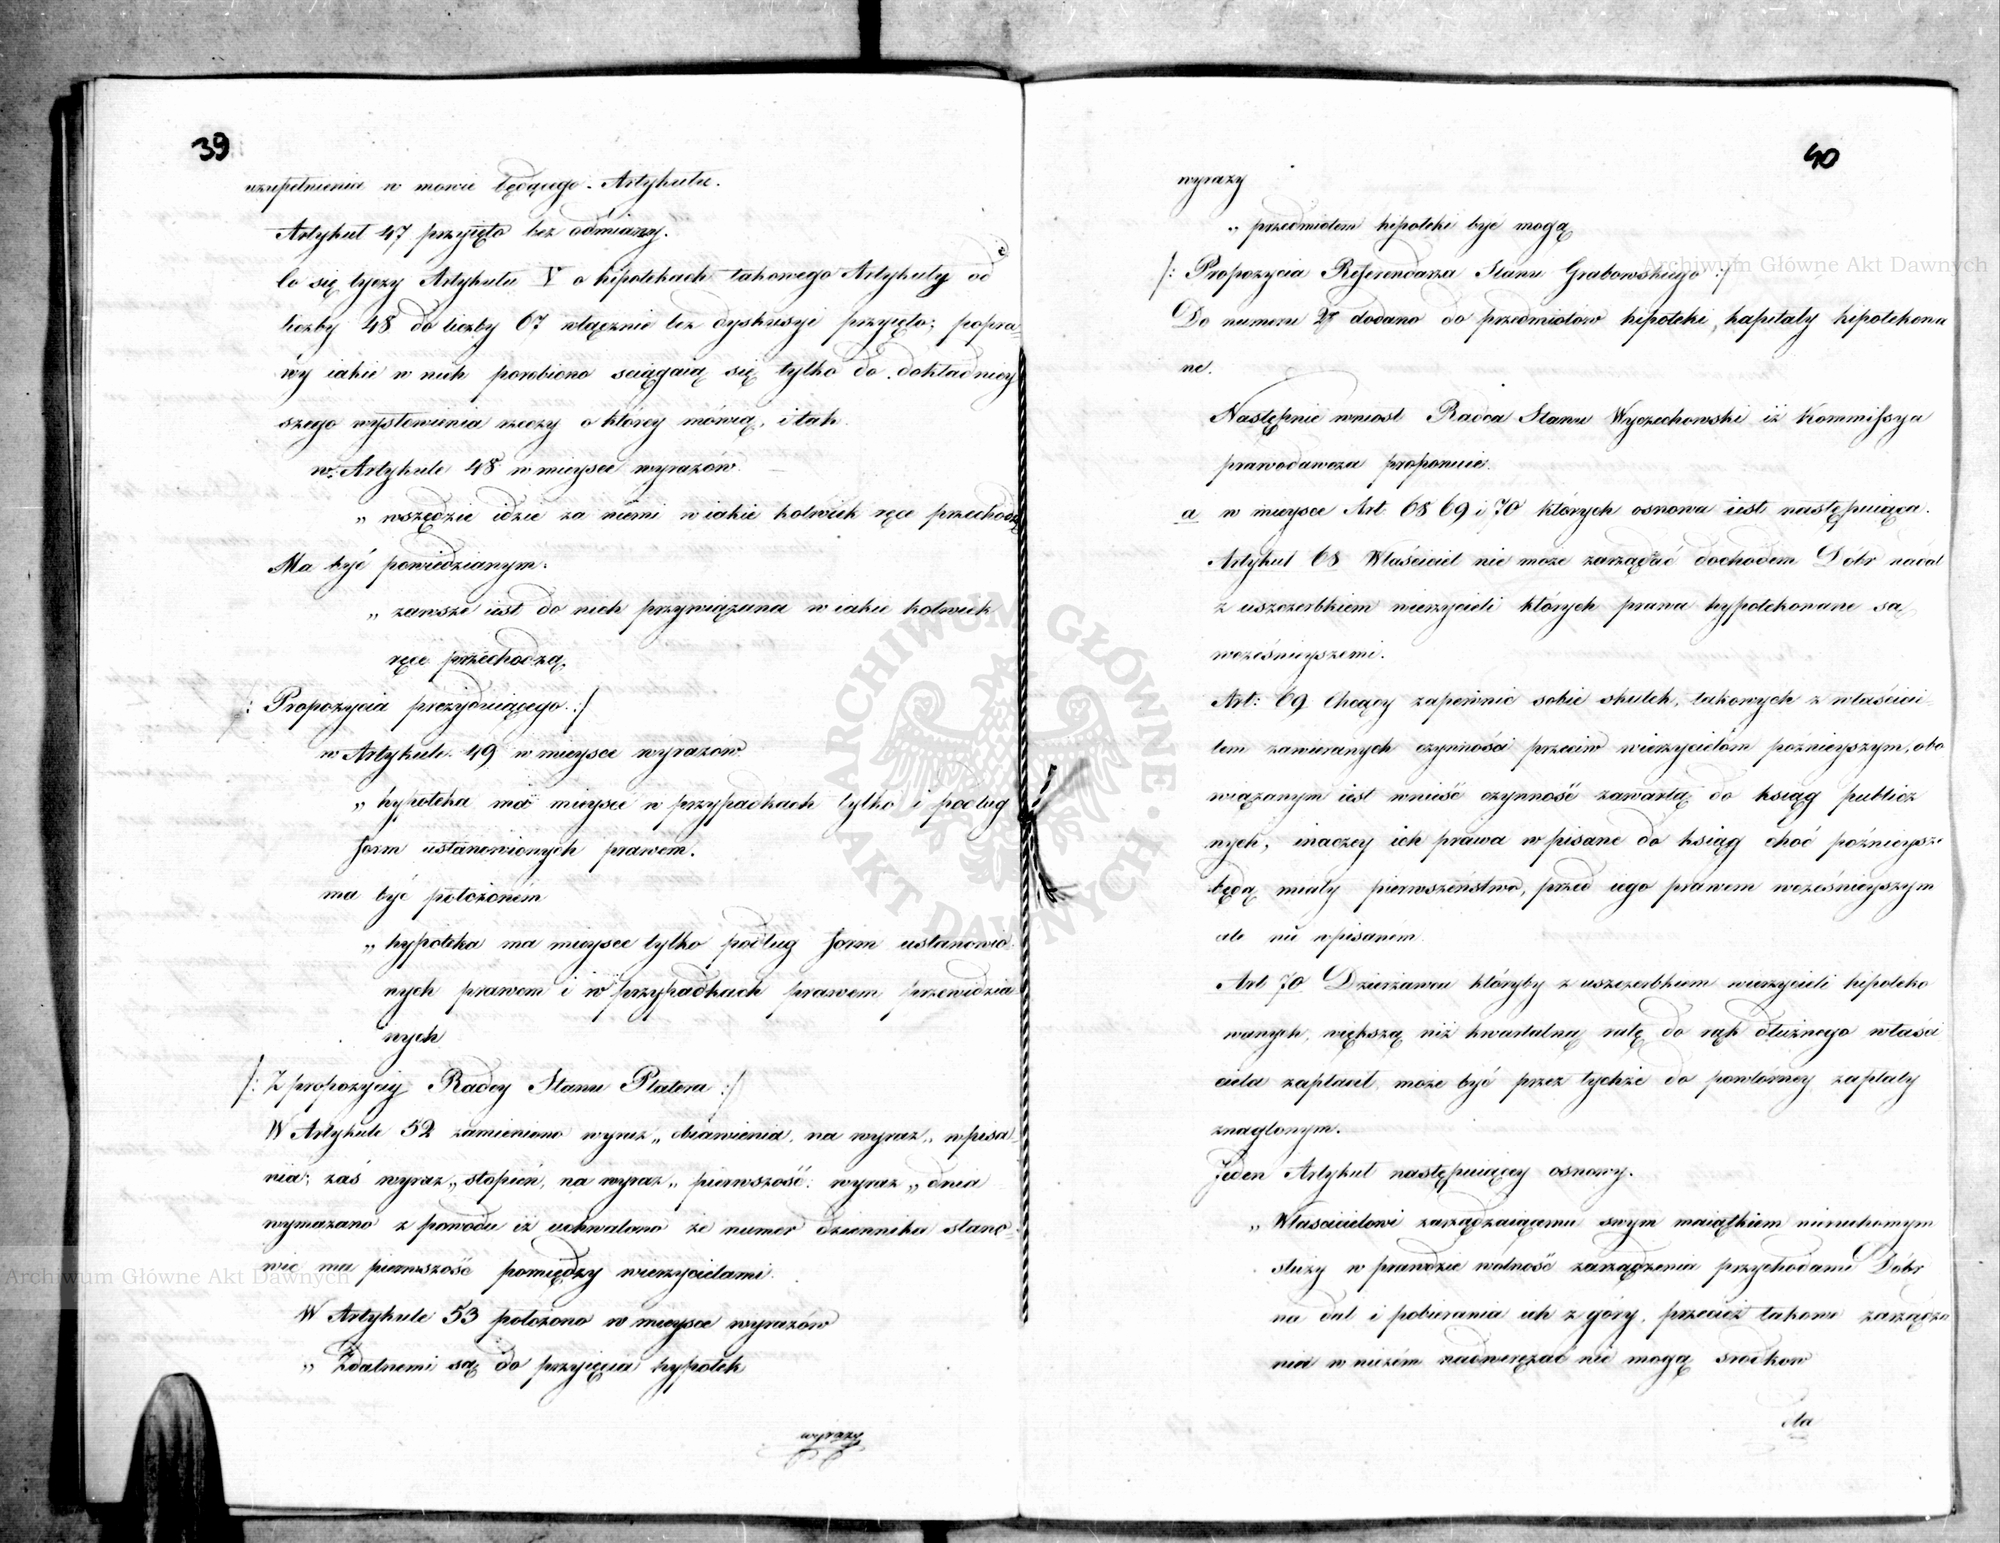 39
uzupełnienia w mowie będącego Artykułu.
Artykuł 47 przyięto bez odmiany.
Co się tyczy Artykułu V o hipotekach takowego Artykuły od
liczby 48 do liczby 67 włącznie bez dyskusyi przyięto; popra-
wy iakie w nich porobiono sciągaią się tylko do dokładniey
szego wysłowienia rzeczy o którey mówią, i tak
w Artykule 48 w mieysce wyrazów
„ wszędzie idzie za niemi w iakie kolwiek ręce przechodzą
Ma być powiedzianym:
„ zawsze iest do nich przywiązana w iakie kolwiek
ręce przechodzą.
/: Propozycia prezyduiącego :/
w Artykule 49 w mieysce wyrazów
„ hypoteka ma mieysce w przypadkach tylko i podług
form ustanowionych prawem.
ma być położoném
„ hypoteka ma mieysce tylko podług form ustanowio
nych prawem i w przypadkach prawem przewidzia
nych
/: Z propozycyi Radcy Stanu Platera :/
W Artykule 52 zamieniono wyraz „ obiawienia, na wyraz „ wpisa-
nia; zaś wyraz „ stopień, na wyraz „ pierwszość: wyraz „ dnia
wymazano z powodu iż uchwalono że numer dziennika stano-
wić ma pierwszość pomiędzy wierzycielami.
W Artykule 53 położono w mieysce wyrazów
„ Zdatnemi są do przyięcia hypotek
wyrazy
40
wyrazy
„ przedmiotem hipoteki być mogą
/: Propozycia Referendarza Stanu Grabowskiego :/
Do numeru 2 dodano do przedmiotów hipoteki, kapitały hipotekowa
ne.
Następnie wniosł Radca Stanu Wyczechowski iż Kommissya
prawodawcza proponuie.
a w mieysce Art. 68 69 i 70 których osnowa iest następuiąca.
Artykuł 68 Właściciel nie może zarządzać dochodem Dobr nadal
z uszczerbkiem wierzycieli których prawa hypotekowane są
wcześnieyszemi.
Art: 69 Chcący zapewnić sobie skutek, takowych z właścici
lem zawieranych czynności przeciw wierzycielom poźnieyszym, obo
wiązanym iest wnieść czynność zawartą do ksiąg publicz
nych; inaczey ich prawa wpisane do ksiąg choć poźnieysze
będą miały pierwszeństwo, przed iego prawem wcześnieyszym
ale nie wpisaném
Art 70 Dzierżawca któryby z uszczerbkiem wierzycieli hipoteko
wanych, większą niż kwartalną ratę do rąk dłużnego właści
ciela zapłacił, może być przez tychże do powtórney zapłaty
znaglonym.
Jeden Artykuł następuiącey osnowy.
„ Właścicielowi zarządzaiącemu swym maiątkiem nieruchomym
służy w prawdzie wolność zarządzenia przychodami Dóbr
na dal i pobierania ich z góry, przecież takowe zarządze
nia w niczém nadweręzać nie mogą srodkow
Archiwum Główne Akt Dawnych
Archiwum Główne Akt Dawnych
ARCHIWUM GŁÓWNE AKT DAWNYCH